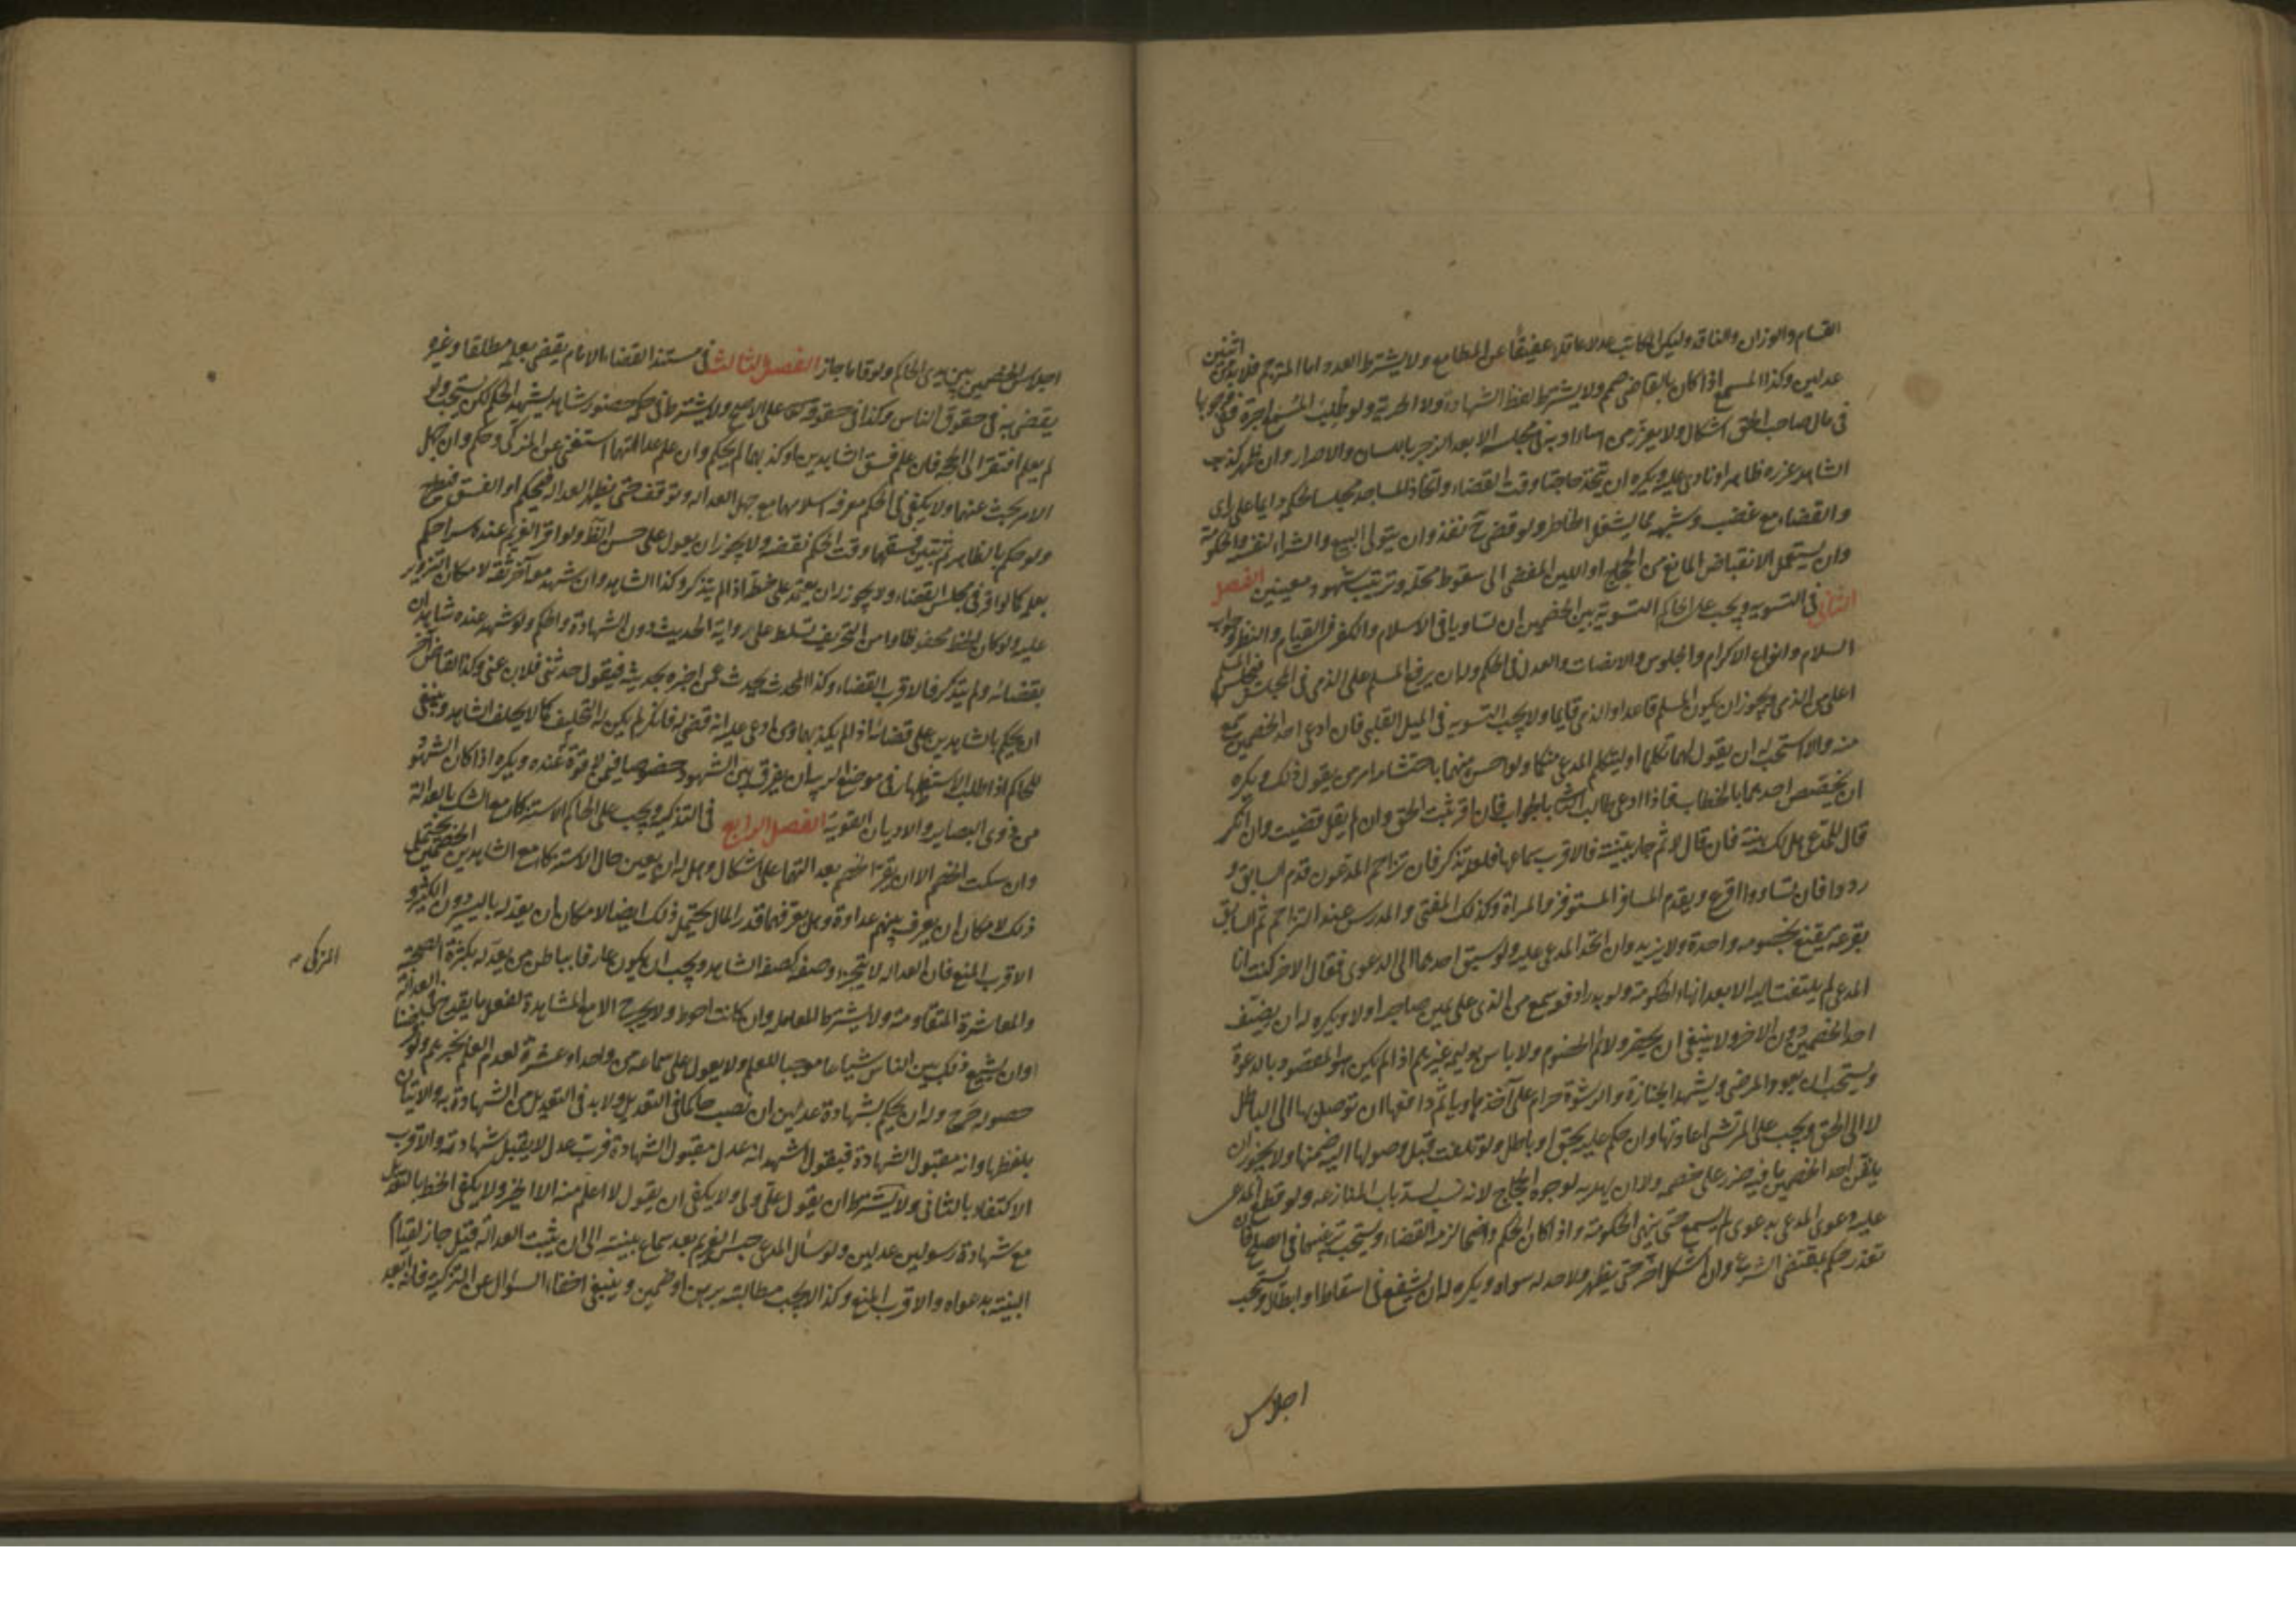 القسام والوزان والناقد وليكن الكاتب عدلا عاقلا عفيفا عن المطامع ولا يشترط العدد اما المترجم فلا بد من اثنين
عدلين وكذا المسمع اذا كان بالقاضي صمم ولا يشترط لفظ الشهادة ولا الحرية ولو طلب المسمع اجرة ففي وجوبها
في مال صاحب الحق اشكال ولا يعزر من اساء ادبه في مجلسه الا بعد الزجر باللسان والاصرار وان ظهر كذب
الشاهد عزره ظاهرا ونادى عليه ويكره ان يتخذ حاجبا وقت القضاء واتخاذ المساجد مجلسا للحكم دايما على راى
والقضاء مع غضب وشبهه مما يشغل الخاطر ولو قضى ح نفذ وان يتولى البيع والشراء لنفسه والحكومة
وان يستعمل الانقباض المانع من الحجاج او اللين المفضي الى سقوط محله وترتيب شهود معينين الفصل
الثاني في التسوية ويجب على الحاكم التسوية بين الخصمين ان تساويا في الاسلام والكفر في القيام والنظر وجواب
السلام وانواع الاكرام والجلوس والانصات والعدل في الحكم وله ان يرفع المسلم على الذمي في المجلس فيجلس المسلم
اعلى من الذمي ويجوز ان يكون المسلم قاعدا والذمي قايما ولا يجب التسوية في الميل القلبي فان ادعى احد الخصمين سمع
منه والا استحب له ان يقول لهما تكلما او ليتكلم المدعي منكما ولو احس منهما باحتشام امر من يقول ذلك ويكره
ان يخصص احدهما بالخطاب فاذا ادعى طالب الثاني بالجواب فان اقر ثبت الحق وان لم يقل قضيت وان انكر
قال للمدعي هل لك بينة فان قال لا ثم جاء ببينة فالاقرب سماعها فلعله تذكر فان تزاحم المدعون قدم السابق و
ردوا فان تساووا اقرع ويقدم المسافر المستوفز والمراة وكذلك المفتي والمدرس عند التزاحم ثم السابق
بقرعة يقنع بخصومة واحدة ولا يزيد وان اتحد المدعى عليه ولو سبق احدهما الى الدعوى فقال الاخر كنت انا
المدعي لم يلتفت اليه الا بعد انهاء الحكومة ولو بدرا دفعة سمع من الذي على يمين صاحبه اولا ويكره له ان يضيف
احد الخصمين دون الاخر ولا ينبغي ان يحضر ولائم الخصوم ولا باس بوليمة غيرهم اذا لم يكن هو المقصود بالدعوة
ويستحب ان يعود المرضى ويشهد الجنازة والرشوة حرام على آخذها وياثم دافعها ان توصل بها الى الباطل
لا الى الحق ويجب على المرتشي اعادتها وان حكم عليه بحق او باطل ولو تلفت قبل وصولها اليه ضمنها ولا يجوز ان
يلقن احد الخصمين ما فيه ضرر على خصمه ولا ان يهديه لوجوه الحجاج لانه نصب لسد باب المنازعة ولو قطع المدعى
عليه دعوى المدعي بدعوى لم يسمع حتى ينهى الحكومة واذا كان الحكم واضحا لزمه القضاء ويستحب ترغيبهما في الصلح فان
تعذر حكم بمقتضى الشرع وان اشكل اخر حتى يظهر ولا حد له سواه ويكره له ان يشفع في اسقاط او ابطال ويستحب
اجلاس
اجلاس الخصمين بين يدي الحاكم ولو قاما جاز الفصل الثالث في مستند القضاء الامام يقضي بعلمه مطلقا وغيره
يقضي به في حقوق الناس وكذا في حقوقه تعالى على الاصح ولا يشترط في حكمه حضور شاهد يشهد الحكم لكن يستحب ولو
لم يعلم افتقر الى الحجة فان علم فسق الشاهدين او كذبهما لم يحكم وان علم عدالتهما استغنى عن المزكي وحكم وان جهل
الامر بحث عنهما ولا يكفي في الحكم معرفة اسلامهما مع جهل العدالة وتوقف حتى يظهر العدالة فيحكم او الفسق فيطرح
ولو حكم بالظاهر ثم تبين فسقهما وقت الحكم نقضه ولا يجوز ان يعول على حسن الظاهر ولو اقر الغريم عنده سرا حكم
بعلمه كما لو اقر في مجلس القضاء ولا يجوز ان يعتمد على خطه اذا لم يتذكر وكذا الشاهد وان شهد معه آخر ثقة لامكان التزوير
عليه ولو كان الخط محفوظا وامن التحريف تسلط على رواية الحديث دون الشهادة والحكم ولو شهد عنده شاهدان
بقضائه ولم يتذكر فالاقرب القضاء وكذا المحدث يحدث عمن اخبره بحديثه فيقول حدثني فلان عني وكذا لقاض آخر
ان يحكم بالشاهدين على قضائه اذا لم يكذبهما ولو ادعى عليه انه قضى له فانكر لم يكن له التحليف كما لا يحلف الشاهد وينبغي
للحاكم اذا طلب الاستظهار في موضع الريبة ان يفرق بين الشهود خصوصا فيمن لا قوة عنده ويكره اذا كان الشهود
من ذوي البصاير والاديان القوية الفصل الرابع في التزكية ويجب على الحاكم الاستزكاء مع الشك بالعدالة
وان سكت الخصم الا ان يقر الخصم بعدالتهما على اشكال وهل له ان يعين حال الاستزكاء مع الشاهدين الخصمين يحتمل
ذلك لامكان ان يعرف بينهم عداوة وهل يعرفهما قدر المال يحتمل ذلك ايضا لامكان ان يعدله باليسير دون الكثير و
الاقرب المنع فان العدالة لا يتجزا وصفة كصفة الشاهد ويجب ان يكون عارفا بباطن من يعدله بكثرة الصحبة
المزكي
والمعاشرة المتقادمة ولا يشترط المعاملة وان كانت احوط ولا يجرح الا مع المشاهدة لفعل ما يقدح في العدالة
او ان يشيع ذلك بين الناس شياعا موجبا للعلم ولا يعول على سماعه من واحد او عشرة لعدم العلم بخبرهم ولو
حصوله جرح وله ان يحكم بشهادة عدلين ان نصب حاكما في التعديل ولا بد في التعديل من الشهادة به والاتيان
بلفظها وانه مقبول الشهادة فيقول اشهد انه عدل مقبول الشهادة فرب عدل لا يقبل شهادته والاقرب
الاكتفاء بالثاني ولا يشترط ان يقول علي ولي ولا يكفي ان يقول لا اعلم منه الا الخير ولا يكفي الخط بالتعديل
مع شهادة رسولين عدلين ولو سال المدعي حبس الغريم بعد سماع بينته الى ان يثبت العدالة قيل جاز لقيام
البينة بدعواه والاقرب المنع وكذا لا يجب مطالبته برهن او ضمين وينبغي اخفاء السؤال عن التزكية فانه ابعد